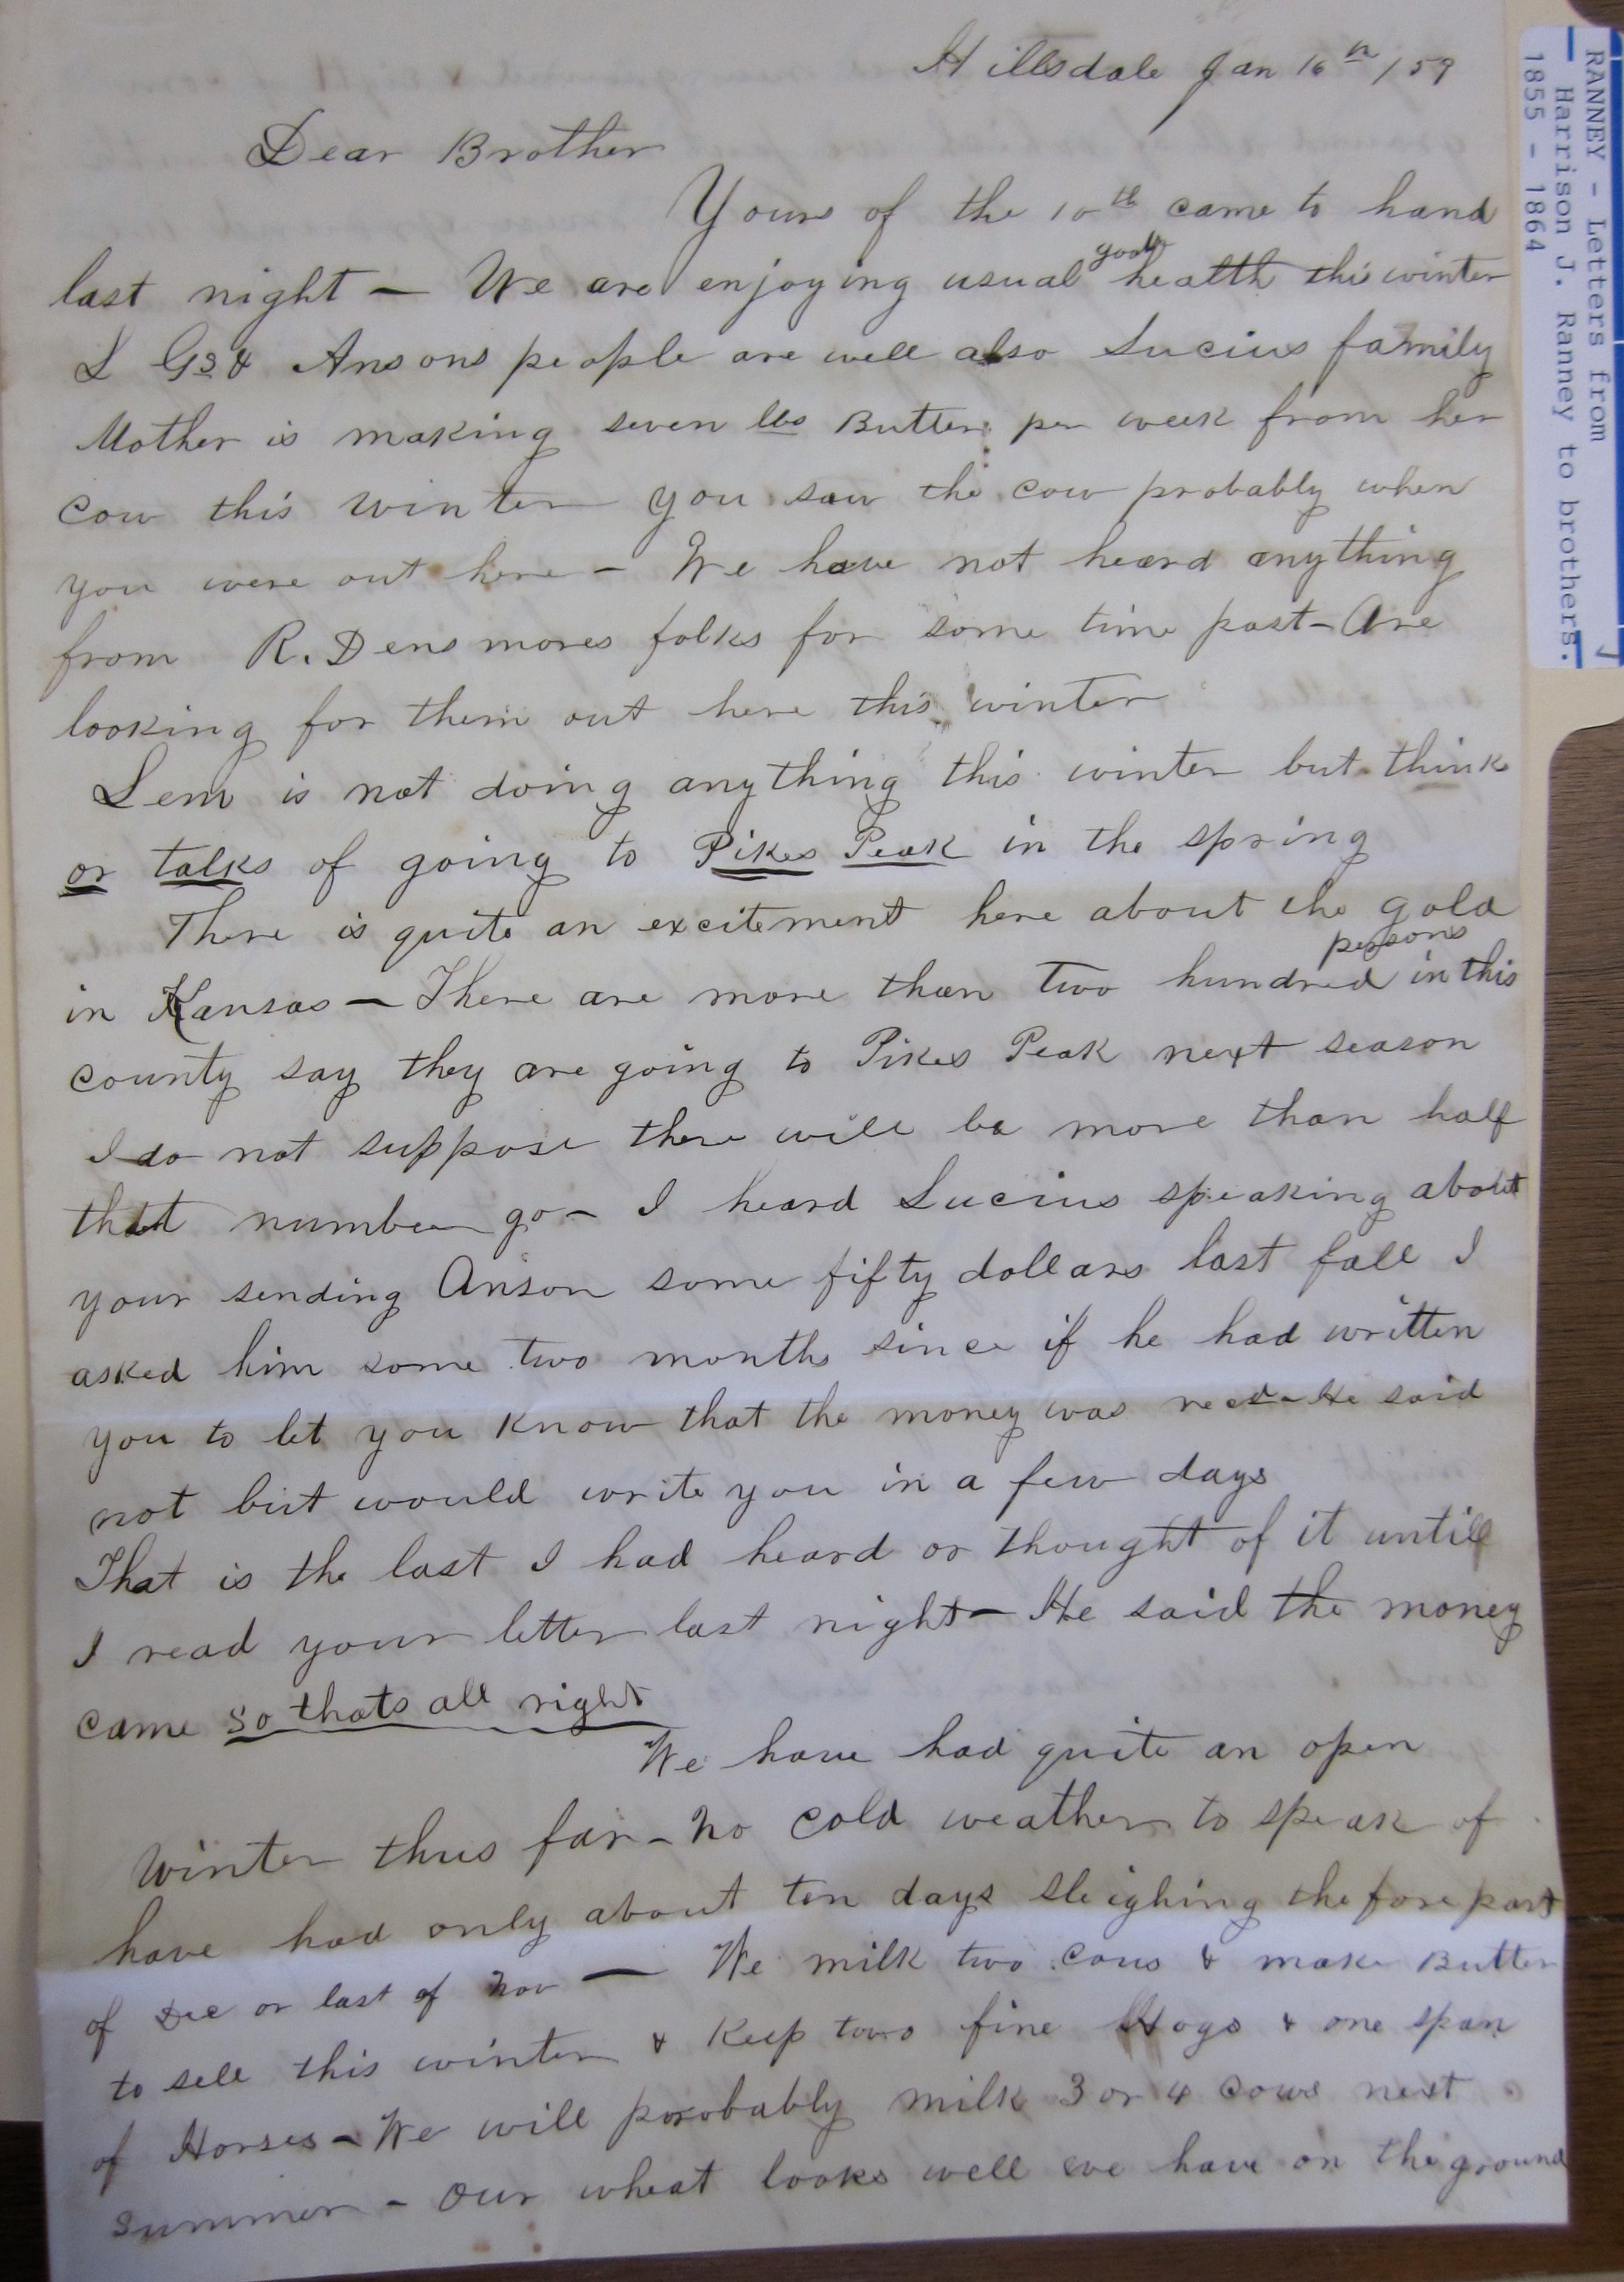 Hillsdale Jan 16th /59
Dear Brother
Yours of the 10th came to hand
last night — We are enjoying usual good health this winter
L Gs & Ansons people are well also Lucius family
Mother is making seven lbs Butter per week from her
cow this winter you saw the cow probably when
you were out here - We have not heard anything
from R. Densmores folks for some time past - Are
looking for them out here this winter
Lem is not doing anything this winter but thinks
or talks of going to Pikes Peak in the spring
There is quite an excitement here about the gold
in Kansas — There are more than two hundred persons in this
county say they are going to Pikes Peak next season
I do not suppose there will be more than half
that number go - I heard Lucius speaking about
your sending Anson some fifty dollars last fall I
asked him some two months since if he had written
you to let you know that the money was recd - He said
not but would write you in a few days
That is the last I had heard or thought of it untill
I read your letter last night — He said the money
came so thats all right
We have had quite an open
winter thus far - No cold weather to speak of
have had only about ten days sleighing the fore part
of Dec or last of Nov — We milk two cows & make Butter
to sell this winter & Keep two fine Hogs & one span
of Horses - We will probably milk 3 or 4 cows next
summer - Our wheat looks well we have on the ground
RANNEY - Letters from
Harrison J. Ranney to brothers.
1855 - 1864